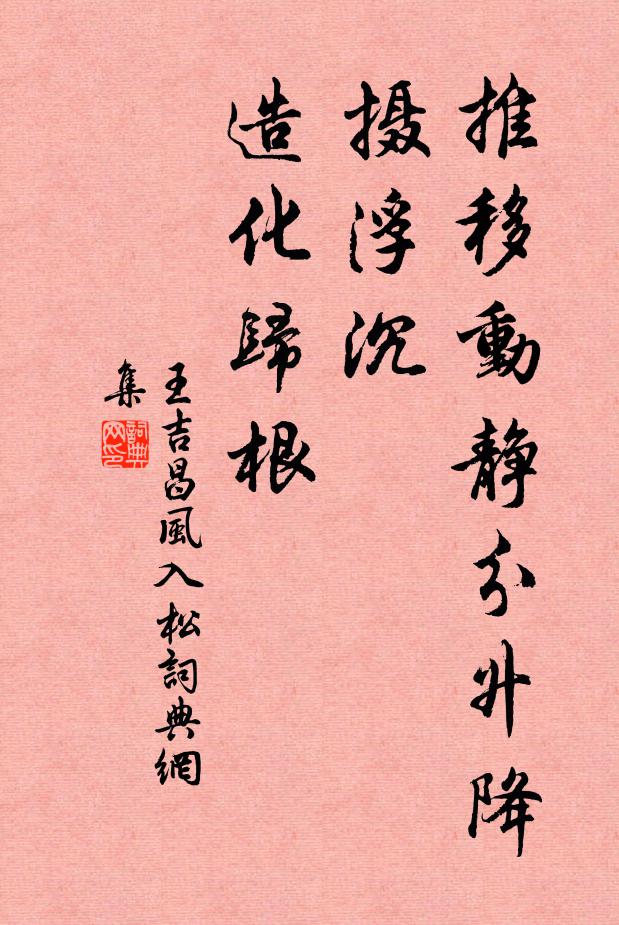 推移動静分升降
摄浮沉
造化歸根
王吉昌風入松詞典網
集
詞典
网印